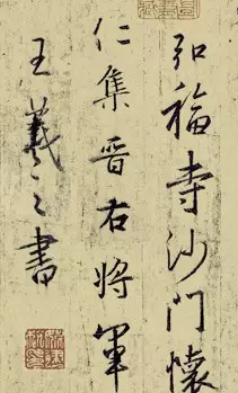 弘福寺沙门懷
仁集晉右將軍
王羲之書